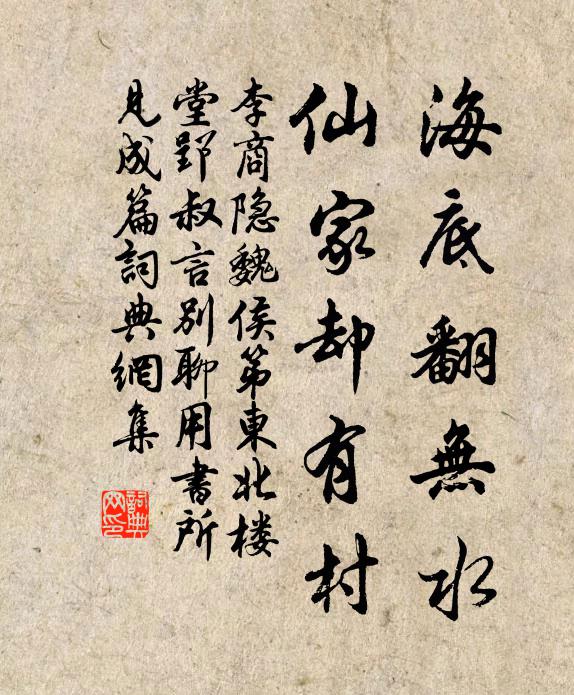 海底翻無水
仙家却有村
李商隐魏侯第東北楼
堂郢叔言別聊用書所
見成篇詞典網集
詞典网印